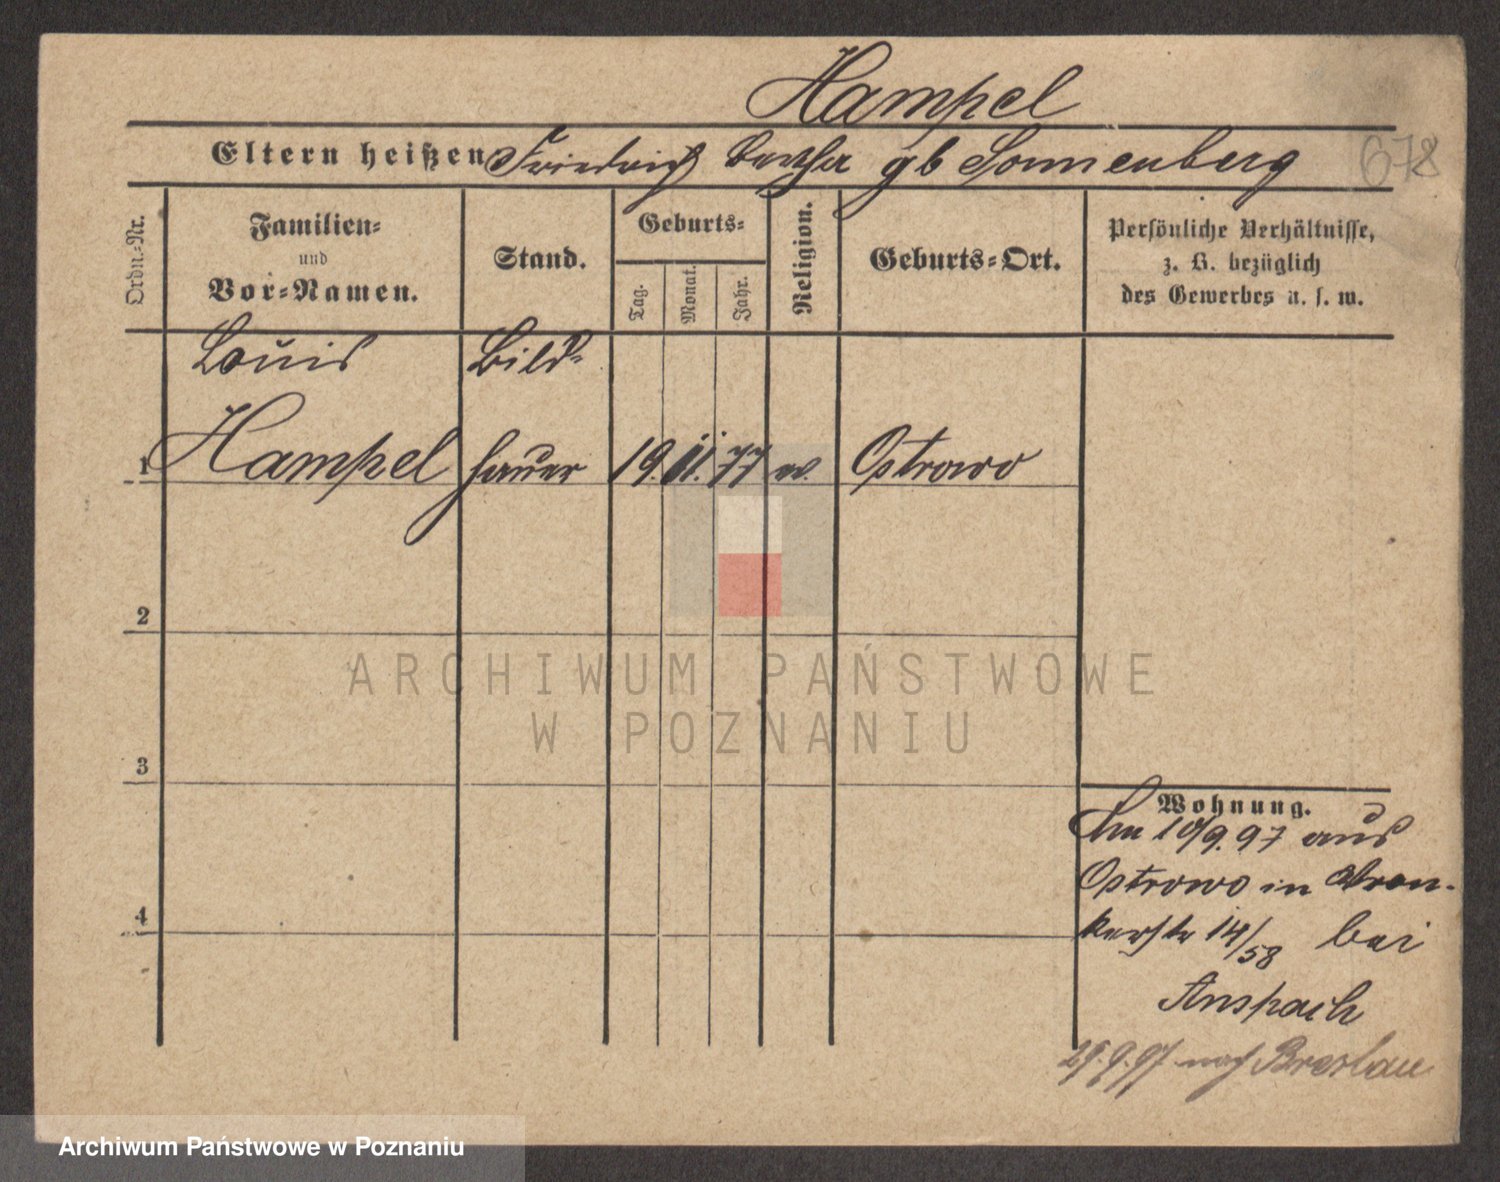 Hampel
Eltern heißen Friedrich Bertha gb Sonnenberg
678
Ordn.-Nr.
Familien-
und
Vor-Namen.
Stand.
Geburts-
Tag.
Monat.
Jahr.
Religion.
Geburts-Ort.
Persönliche Verhältnisse,
z. B. bezüglich
des Gewerbes u. s. w.
Louis Bild-
1 Hampel hauer 19. 11. 77 Ostrowo
2
3
4
ARCHIWUM PAŃSTWOWE
W POZNANIU
Wohnung.
10/9.97 aus
Ostrowo in
14/58 bei
Anspach
29.9.97 nach Breslau
Archiwum Państwowe w Poznaniu